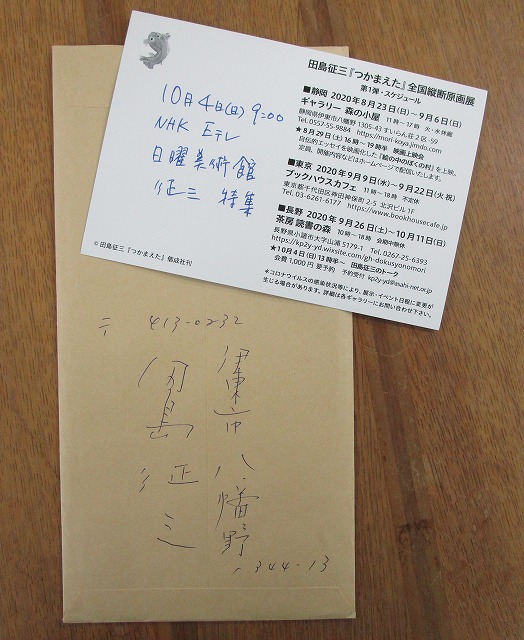 田島征三『つかまえた』全国縦断原画展
第1弾・スケジュール
■静岡 2020年8月23日(日)〜9月6日(日)
ギャラリー 森の小屋 11時〜17時 火・水休廊
静岡県伊東市八幡野1305-43 すいらん荘2区-59
Tel. 0557-55-9884 https://mori-koya.jimdo.com
★8月29日(土)16時〜19時半 映画上映会
自伝的エッセイを映画化した「絵の中のぼくの村」を上映。
定員、開催内容などはホームページで配信いたします。
■東京 2020年9月9日(水)〜9月22日(火祝)
ブックハウスカフェ 11時〜18時 不定休
東京都千代田区神田神保町2-5 北沢ビル1F
Tel. 03-6261-6177 https://www.bookhousecafe.jp
■長野 2020年9月26日(土)〜10月11日(日)
茶房 読書の森 10時〜18時 会期中無休
長野県小諸市大字山浦5179-1 Tel. 0267-25-6393
https://kp2y-yd.wixsite.com/gh-dokusyonomori
★10月4日(日)13時半〜 田島征三のトーク
会費1,000円 要予約 予約受付 kp2y-yd@asahi-net.or.jp
＊コロナウイルスの感染状況等により、展示・イベント日程に変更が
生じる場合があります。詳細は各ギャラリーにお問い合わせ下さい。
10月4日(日) 9:00
NHK Eテレ
日曜美術館
征三 特集
© 田島征三『つかまえた』偕成社刊
〒 413-0232
伊東市八幡野
1344-13
田島征三